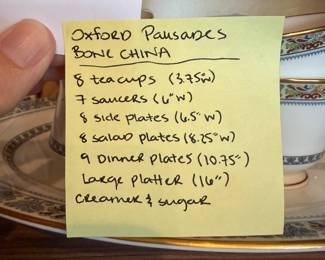 Oxford Palisades
BONE CHINA
8 teacups (3.75"w)
7 saucers (6" w)
8 side plates (6.5" w)
8 salad plates (8.25" w)
9 Dinner plates (10.75")
Large platter (16")
creamer & sugar